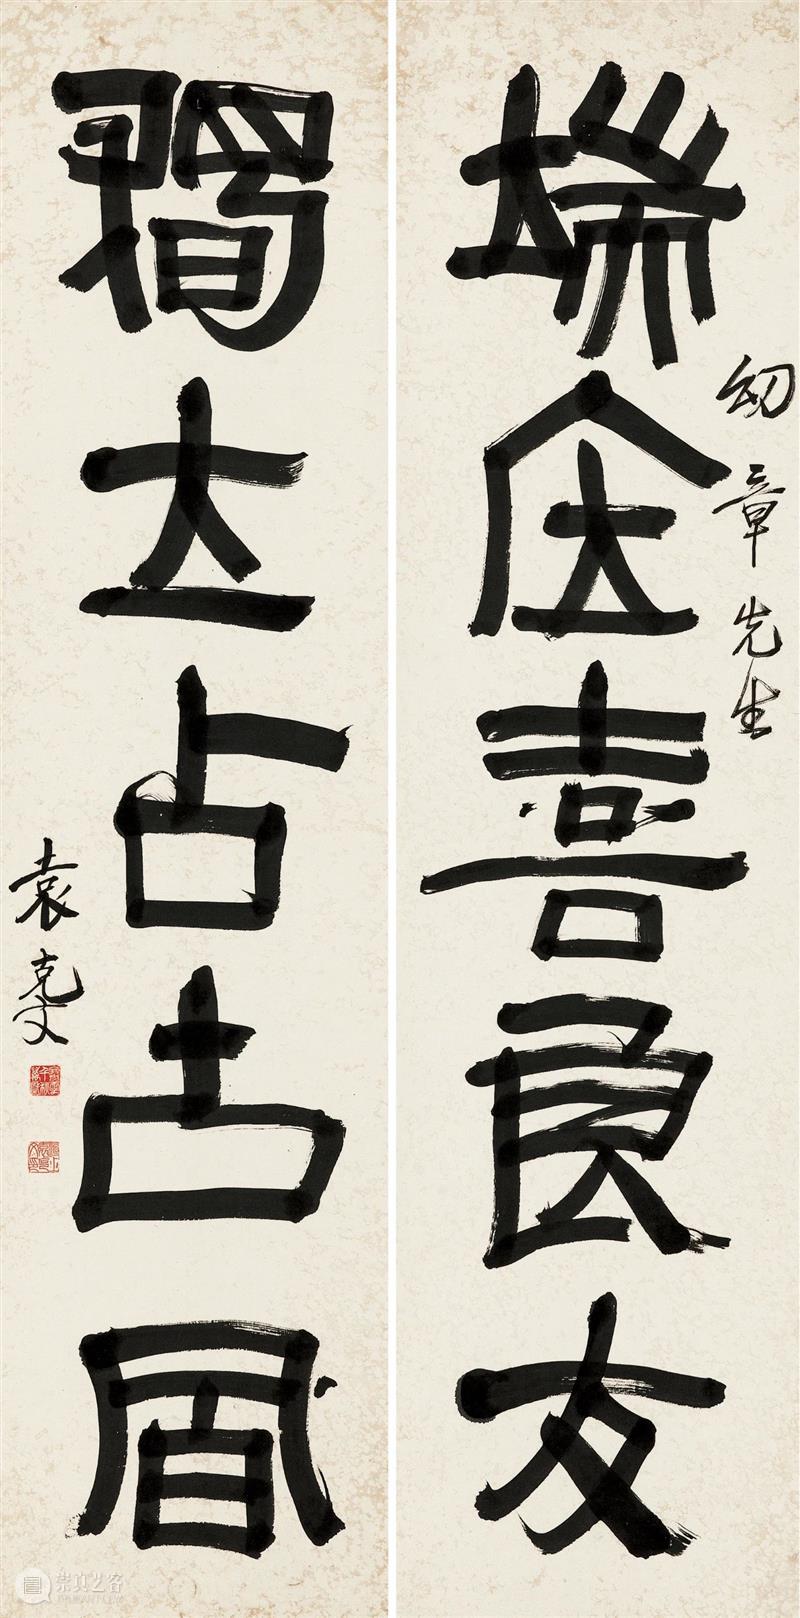 端居喜良友
幼章先生
獨立占古風
袁克文
崇真艺客